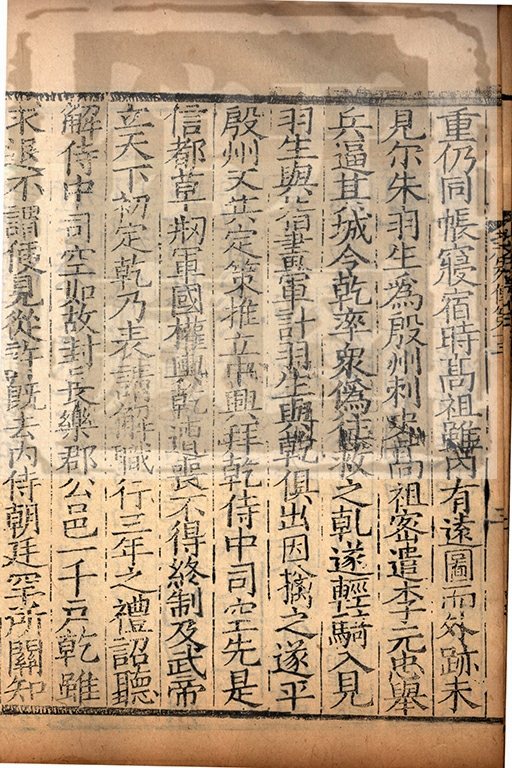 重仍同帳寢宿時高祖雖内有遠圖而外跡未
見尔朱羽生爲殷州刺史高祖密遣李元忠舉
兵逼其城令乾率衆僞往救之乹遂輕騎入見
羽生與指畫軍計羽生與乾俱出因擒之遂平
殷州又共定策推立中興拜乾侍中司空先是
信都草剏軍國權輿乾遭喪不得終制及武帝
立天下初定乾乃表請解職行三年之禮詔聽
解侍中司空如故封長樂郡公邑一千戸乾雖
求退不謂便見從許既去内侍朝廷空所關知